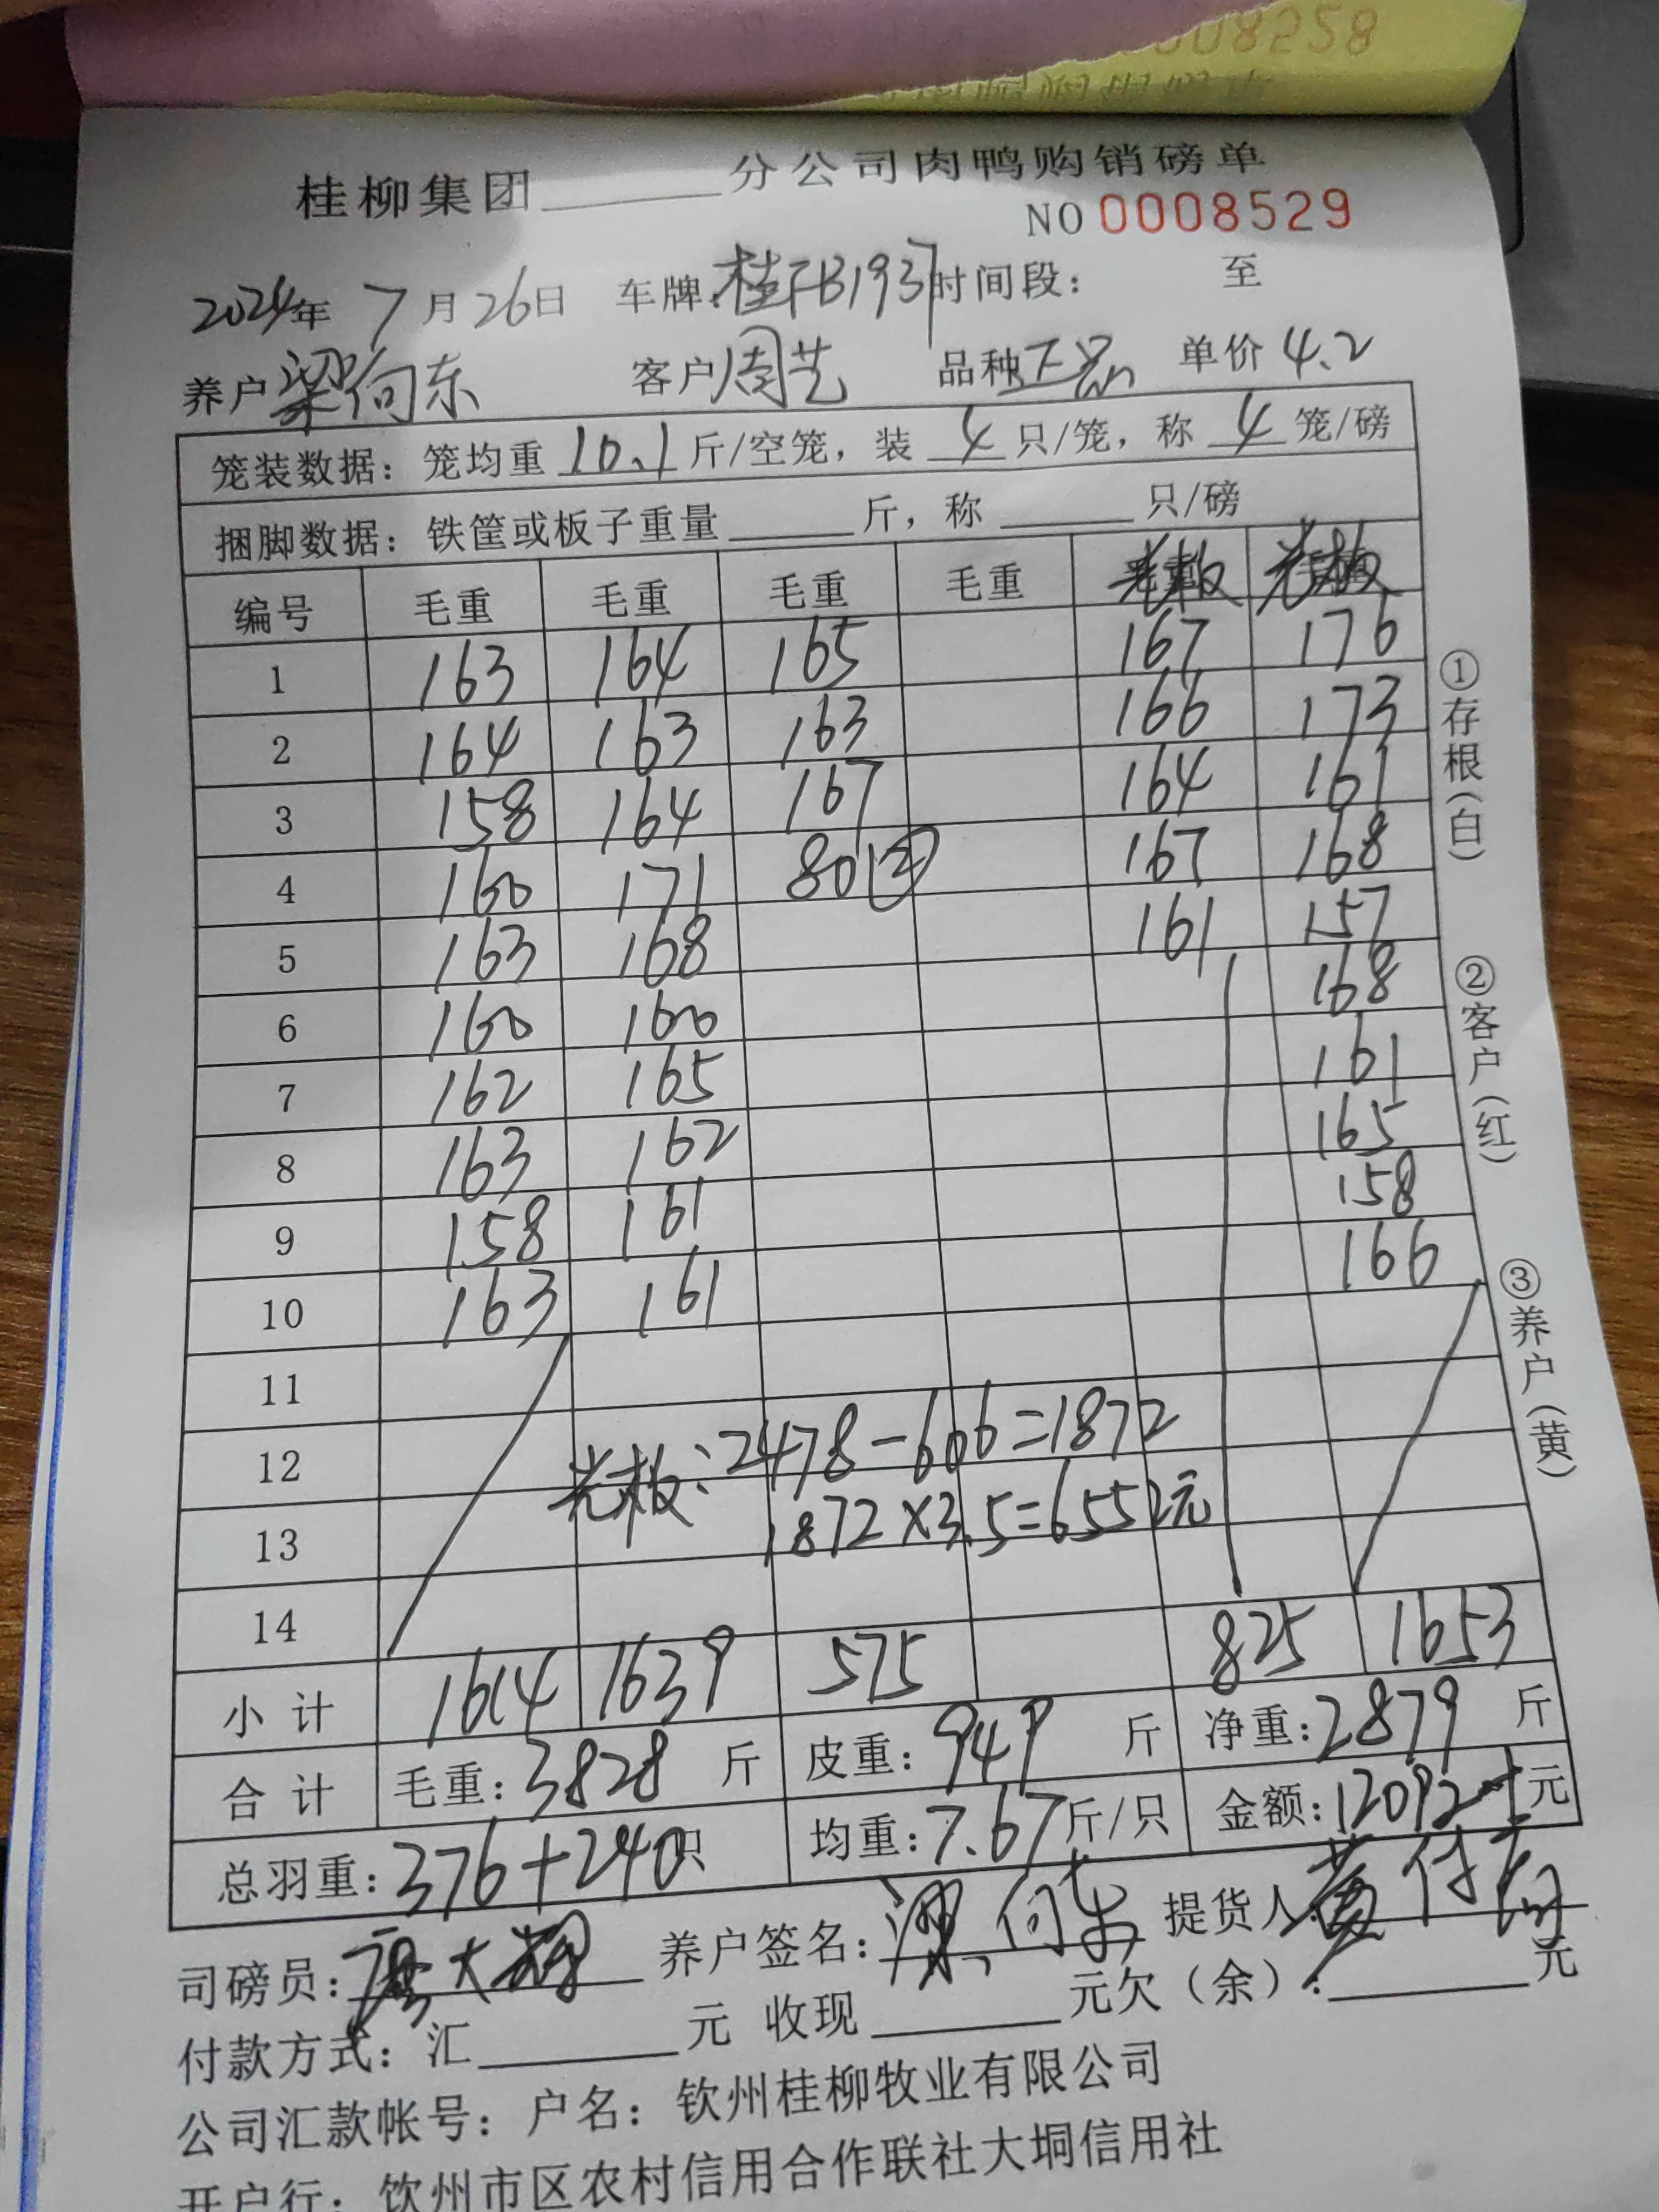 0008528
桂柳集团______分公司肉鸭购销磅单
NO 0008529
2024年 7月26日 车牌:桂FB1937 时间段: 至
养户 梁向东 客户 周艺 品种 正品 单价 4.2
笼装数据: 笼均重 10.1 斤/空笼, 装 4 只/笼, 称 4 笼/磅
捆脚数据: 铁筐或板子重量______斤, 称______只/磅
编号 毛重 毛重 毛重 毛重 光板 光板
1 163 164 165 167 176
2 164 163 163 166 173
3 158 164 167 164 161
4 160 171 80② 167 168
5 163 168 161 157
6 160 160 168
7 162 165 161
8 163 162 165
9 158 161 158
10 163 161 166
11
12 光板:2478-606=1872
13 1872×3.5=6552元
14
小计 1614 1639 575 825 1653
合计 毛重:3828 斤 皮重:949 斤 净重:2879 斤
总羽重:376+240只 均重:7.67斤/只 金额:12092元
司磅员: 养户签名:梁向东 提货人:黄付
付款方式: 汇______元 收现______元欠(余):______元
公司汇款帐号: 户名: 钦州桂柳牧业有限公司
开户行: 钦州市区农村信用合作联社大垌信用社
①存根(白)
②客户(红)
③养户(黄)